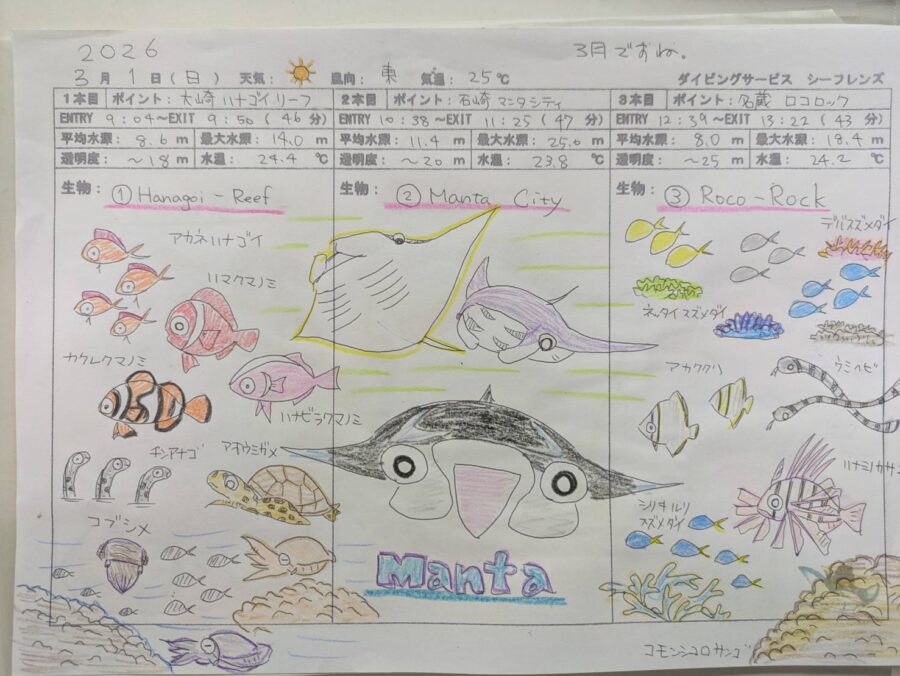 2026
3月ですね。
3月1日(日) 天気: 風向: 東 気温: 25℃ ダイビングサービス シーフレンズ
1本目 ポイント: 大崎 ハナゴイリーフ
ENTRY 9:04~EXIT 9:50 (46分)
平均水深: 8.6 m 最大水深: 14.0 m
透明度: ~18 m 水温: 24.4 ℃
生物:
① Hanagoi-Reef
アカネハナゴイ
ハマクマノミ
カクレクマノミ
ハナビラクマノミ
チンアナゴ
アオウミガメ
コブシメ
2本目 ポイント: 石崎 マンタシティ
ENTRY 10:38~EXIT 11:25 (47分)
平均水深: 11.4 m 最大水深: 25.0 m
透明度: ~20 m 水温: 23.8 ℃
生物:
② Manta City
Manta
3本目 ポイント: 名蔵 ロコロック
ENTRY 12:39~EXIT 13:22 (43分)
平均水深: 8.0 m 最大水深: 18.4 m
透明度: ~25 m 水温: 24.2 ℃
生物:
③ Roco-Rock
デバスズメダイ
ネッタイスズメダイ
アカククリ
ウミヘビ
ハナミノカサゴ
シリキルリ
スズメダイ
コモンシコロサンゴ